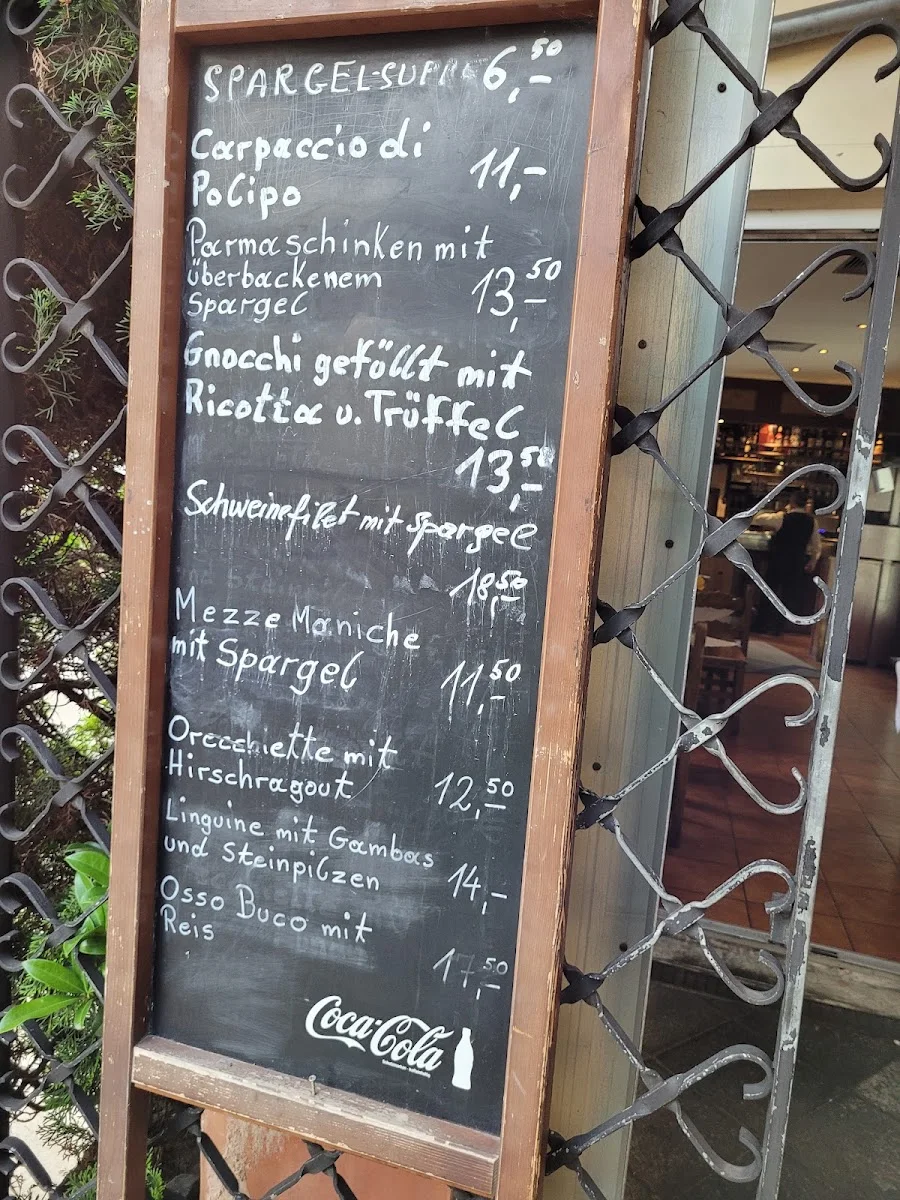 SPARGEL-SUPPE 6,50
Carpaccio di
Polipo 11,-
Parmaschinken mit
überbackenem
Spargel 13,50
Gnocchi geföllt mit
Ricotta u. Trüffel
13,50
Schweinefilet mit Spargel
18,50
Mezze Maniche
mit Spargel 11,50
Orecchiette mit
Hirschragout 12,50
Linguine mit Gambas
und Steinpilzen 14,-
Osso Buco mit
Reis
17,50
Coca-Cola